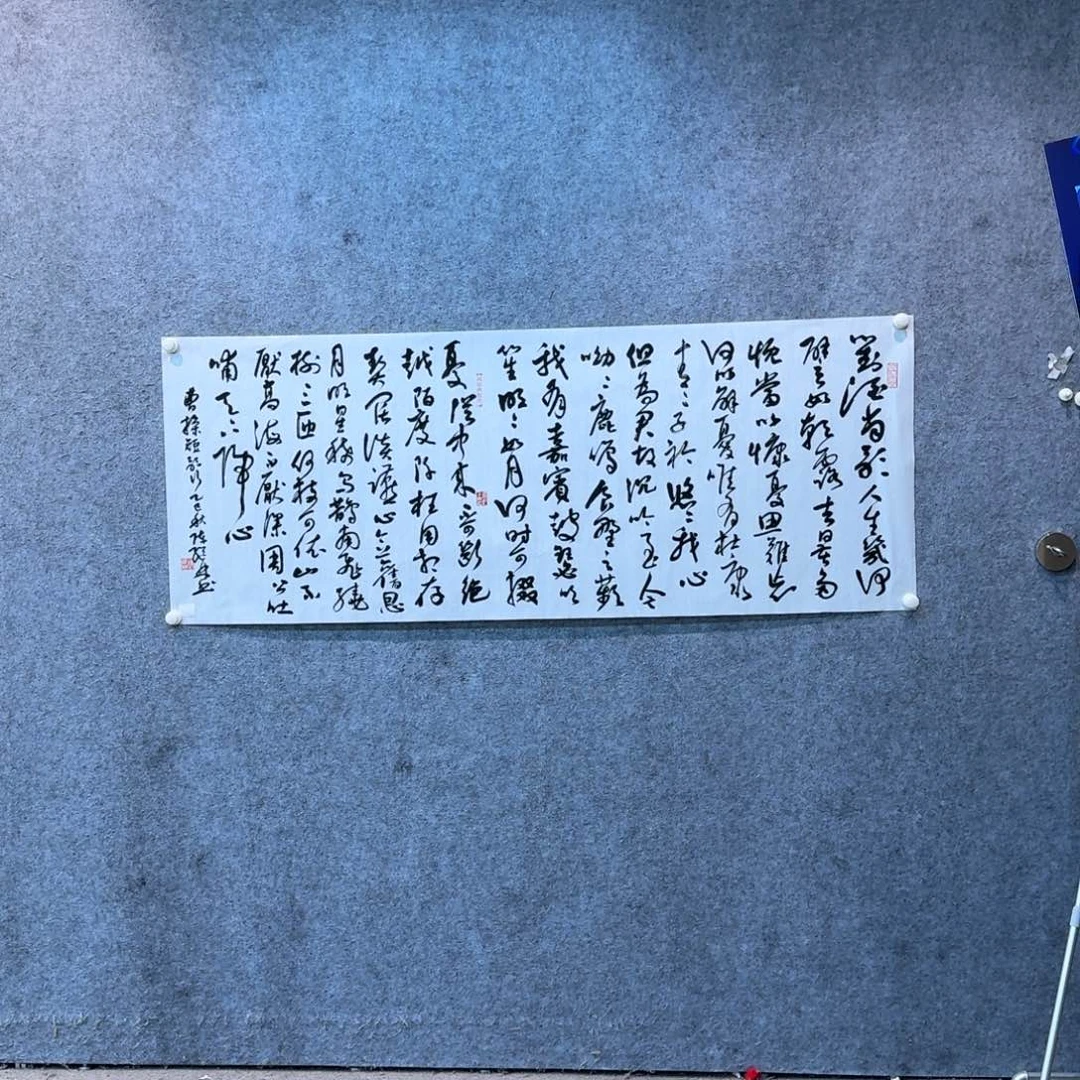 對酒當歌人生幾何
譬如朝露去日苦多
慨當以慷憂思難忘
何以解憂唯有杜康
青〻子衿悠〻我心
但為君故沉吟至今
呦〻鹿鳴食野之苹
我有嘉賓鼓瑟吹
笙明〻如月何時可掇
憂從中來不可斷絕
越陌度阡枉用相存
契闊談讌心念舊恩
月明星稀烏鵲南飛繞
樹三匝何枝可依山不
厭高海不厭深周公吐
哺天下歸心
曹操短歌行乙巳秋